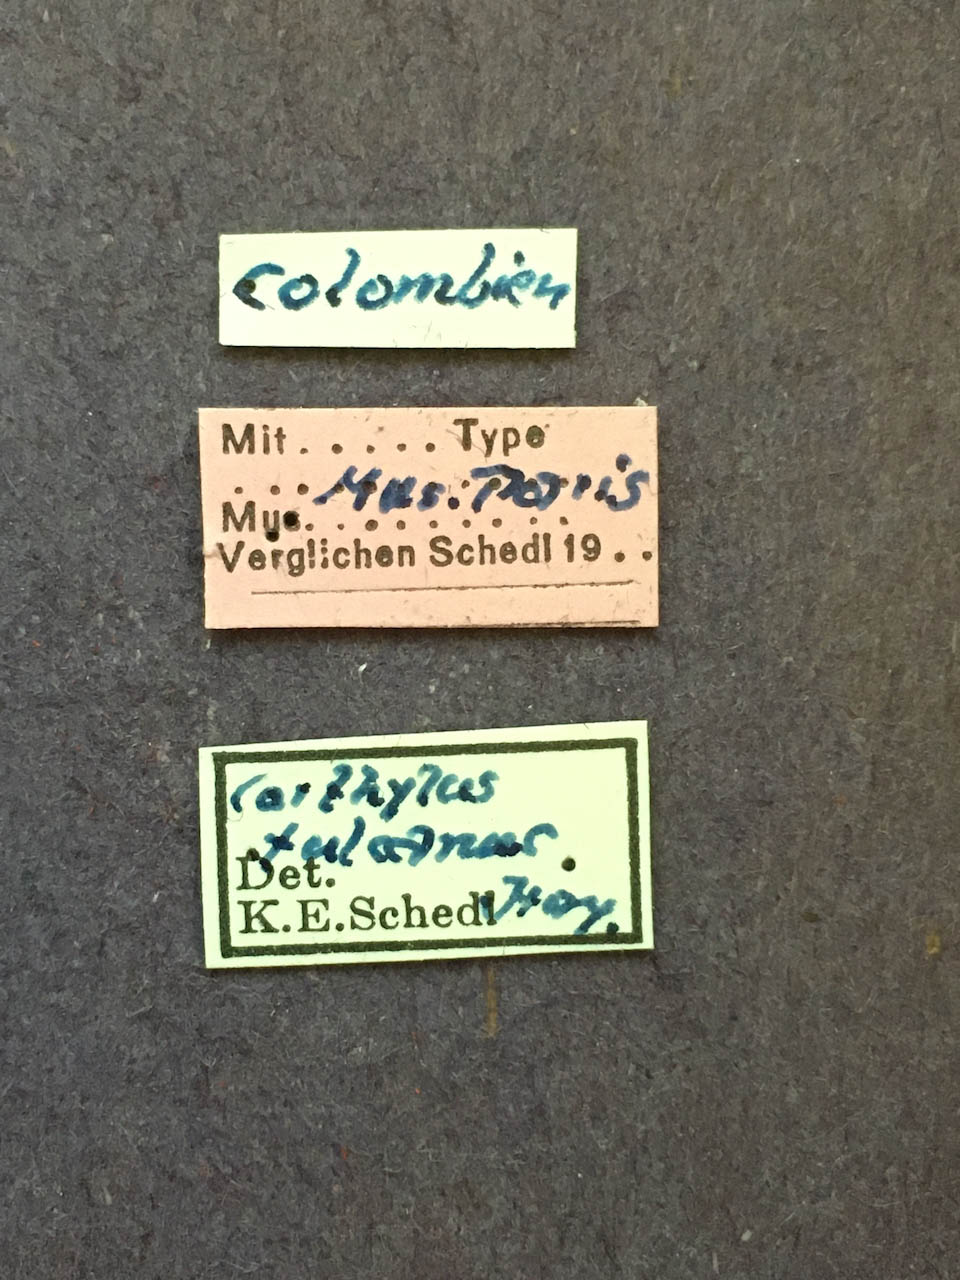 Colombien
Mit. . . . . Type
. . . Mus. Paris
Mus. . . . . . . . .
Verglichen Schedl 19 . .
Corthylus
tulcanus
Det.
K.E.Schedl Hag.